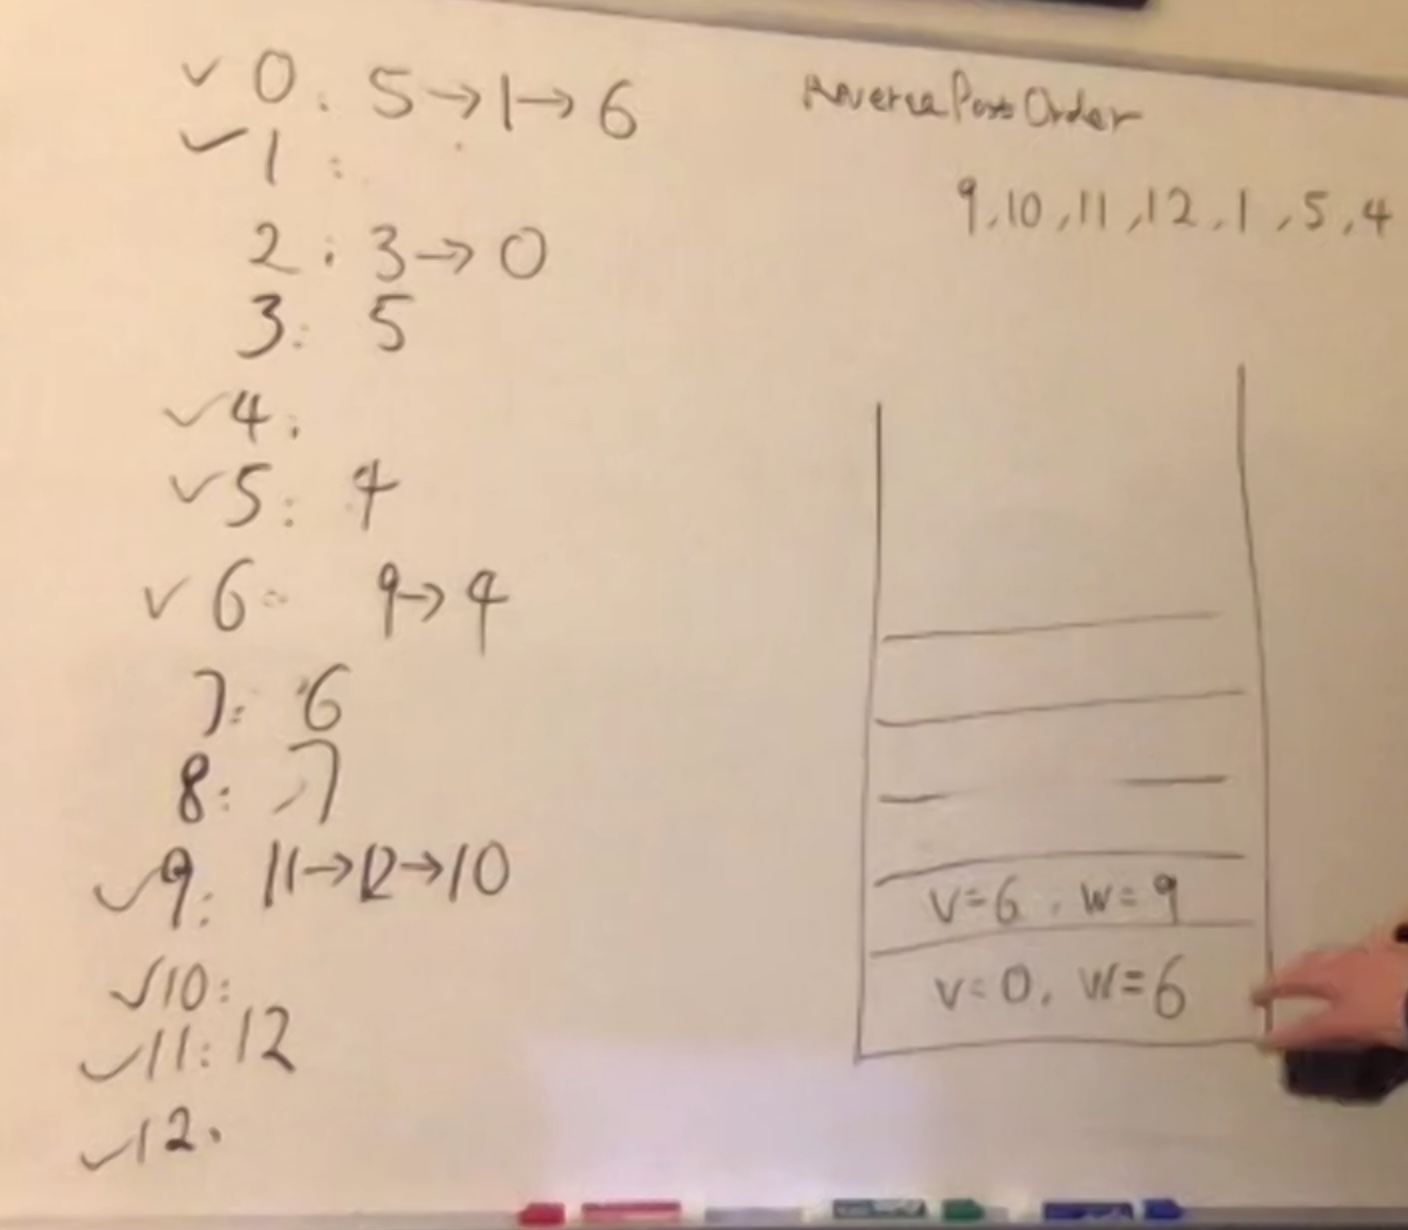 ✓ 0: 5→1→6
✓ 1:
2: 3→0
3: 5
✓ 4:
✓ 5: 4
✓ 6: 9→4
7: 6
8: 7
✓ 9: 11→12→10
✓ 10:
✓ 11: 12
✓ 12:
Reverse Post Order
9,10,11,12,1,5,4
v=6, w=9
v=0, w=6